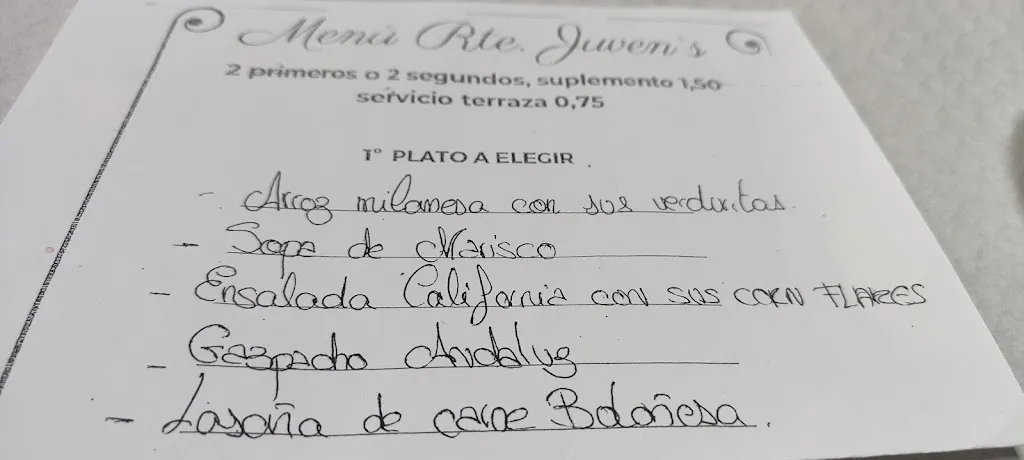 Menú Rte. Juven's
2 primeros o 2 segundos, suplemento 1,50
servicio terraza 0,75
1º PLATO A ELEGIR
- Arroz milanesa con sus verduritas.
- Sopa de Marisco
- Ensalada California con sus CORN FLAKES
- Gazpacho Andaluz
- Lasaña de carne Boloñesa.